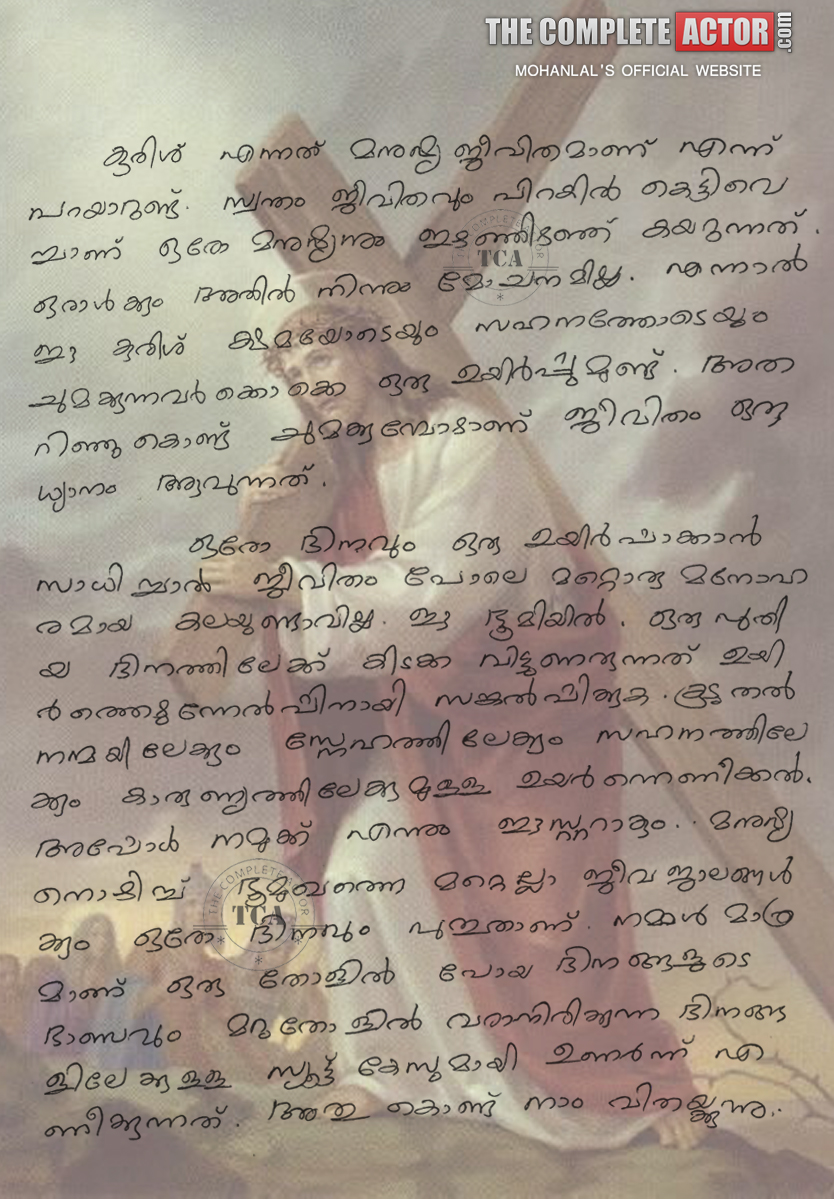 THE COMPLETE ACTOR.com
MOHANLAL'S OFFICIAL WEBSITE
കുരിശ് എന്നത് മനുഷ്യ ജീവിതമാണ് എന്ന്
പറയാറുണ്ട്. സ്വന്തം ജീവിതവും പിറകിൽ കെട്ടിവെ
ച്ചാണ് ഒരോ മനുഷ്യനും ഇടുങ്ങിടത്ത് കയറുന്നത്.
ഒരാൾക്കും അതിൽ നിന്നും മോചനമില്ല. എന്നാൽ
ഈ കുരിശ് ക്ഷമയോടെയും സഹനത്തോടെയും
ചുമക്കുന്നവർക്കൊക്കെ ഒരു ഉയിർപ്പുമുണ്ട്. അത
റിഞ്ഞുകൊണ്ട് ചുമക്കുമ്പോഴാണ് ജീവിതം ഒരു
ധ്യാനം ആവുന്നത്.
ഒരോ ദിനവും ഒരു ഉയിർപ്പാക്കാൻ
സാധിച്ചാൽ ജീവിതം പോലെ മറ്റൊരു മനോഹ
രമായ കലയുണ്ടാവില്ല. ഈ ഭൂമിയിൽ. ഒരു പുതി
യ ദിനത്തിലേക്ക് കിടക്ക വിട്ടുണരുന്നത് ഉയി
ർത്തെഴുന്നേൽപ്പിനായി സങ്കൽപ്പിക്കുക. കൂടുതൽ
നന്മയിലേക്കും സ്നേഹത്തിലേക്കും സഹനത്തിലേ
ക്കും കാരുണ്യത്തിലേക്കുമുള്ള ഉയർന്നെണീക്കൽ.
അപ്പോൾ നമുക്ക് എന്നും ഈസ്റ്ററാകും.. മനുഷ്യ
നൊഴിച്ച് ഭൂമുഖത്തെ മറ്റെല്ലാ ജീവജാലങ്ങൾ
ക്കും ഒരോ ദിനവും പുതുതാണ്. നമ്മൾ മാത്ര
മാണ് ഒരു തോളിൽ പോയ ദിനങ്ങളുടെ
ഭാണ്ഡവും മറുതോളിൽ വരാനിരിക്കുന്ന ദിനങ്ങ
ളിലേക്കുള്ള സ്യൂട്ട് കേസുമായി ഉണർന്ന് എ
ണീക്കുന്നത്. അതു കൊണ്ട് നാം വിതയ്ക്കുന്നു..
THE COMPLETE ACTOR
TCA
THE COMPLETE ACTOR
TCA